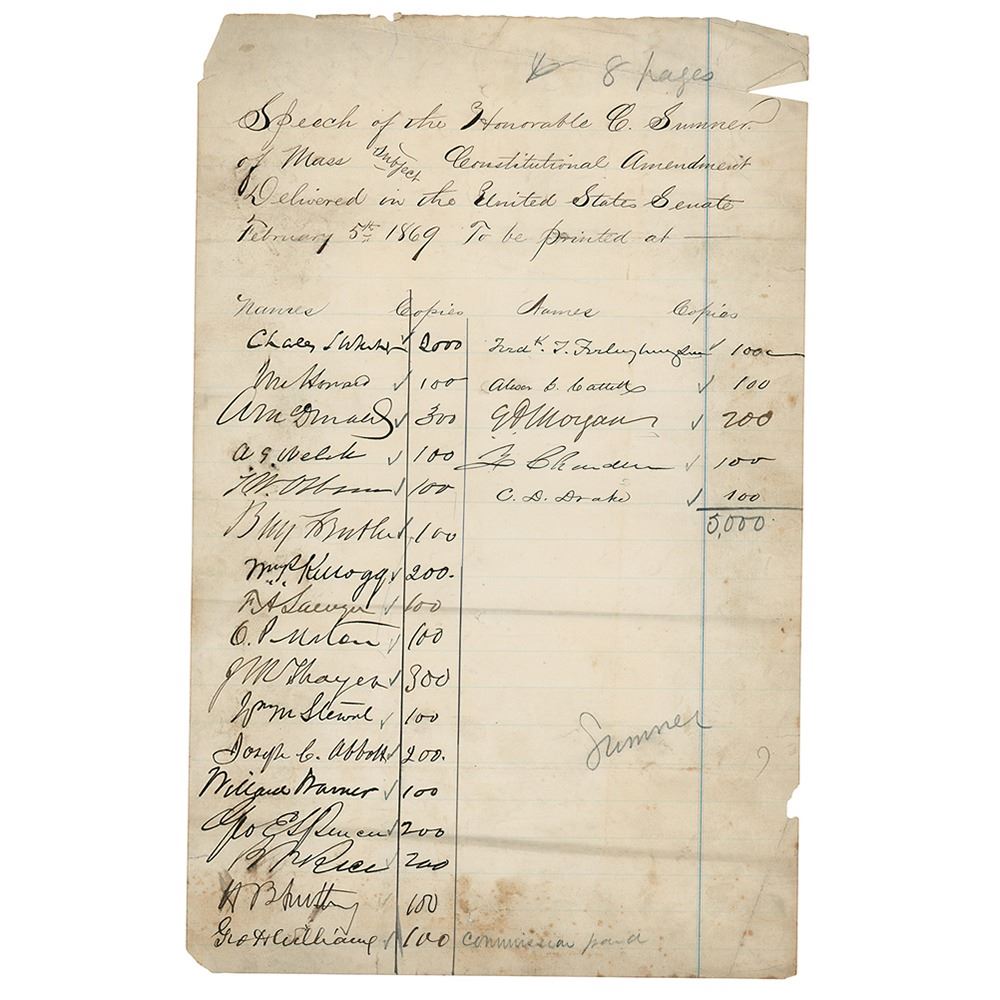 8 pages
Speech of the Honorable C. Sumner.
of Mass subject Constitutional Amendment
Delivered in the United States Senate
February 5th 1869 To be printed at —
Names Copies Names Copies
Charles 2000 Fredk. T. Frelinghuysen 100
100 Alex G. Cattell 100
300 E D Morgan 200
A. S. Welch 100 Z Chandler 100
T. W. Osborn 100 C. D. Drake 100
5,000.
100
Wm P. Kellogg 200.
F. A. Sawyer 100
O. P. Morton 100
J M Thayer 300
Wm M Stewart 100
Joseph C. Abbott 200.
Willard Warner 100
Geo E Spencer 200
B F Rice 200
Sumner
H B 100
Geo H Williams 100 commission paid